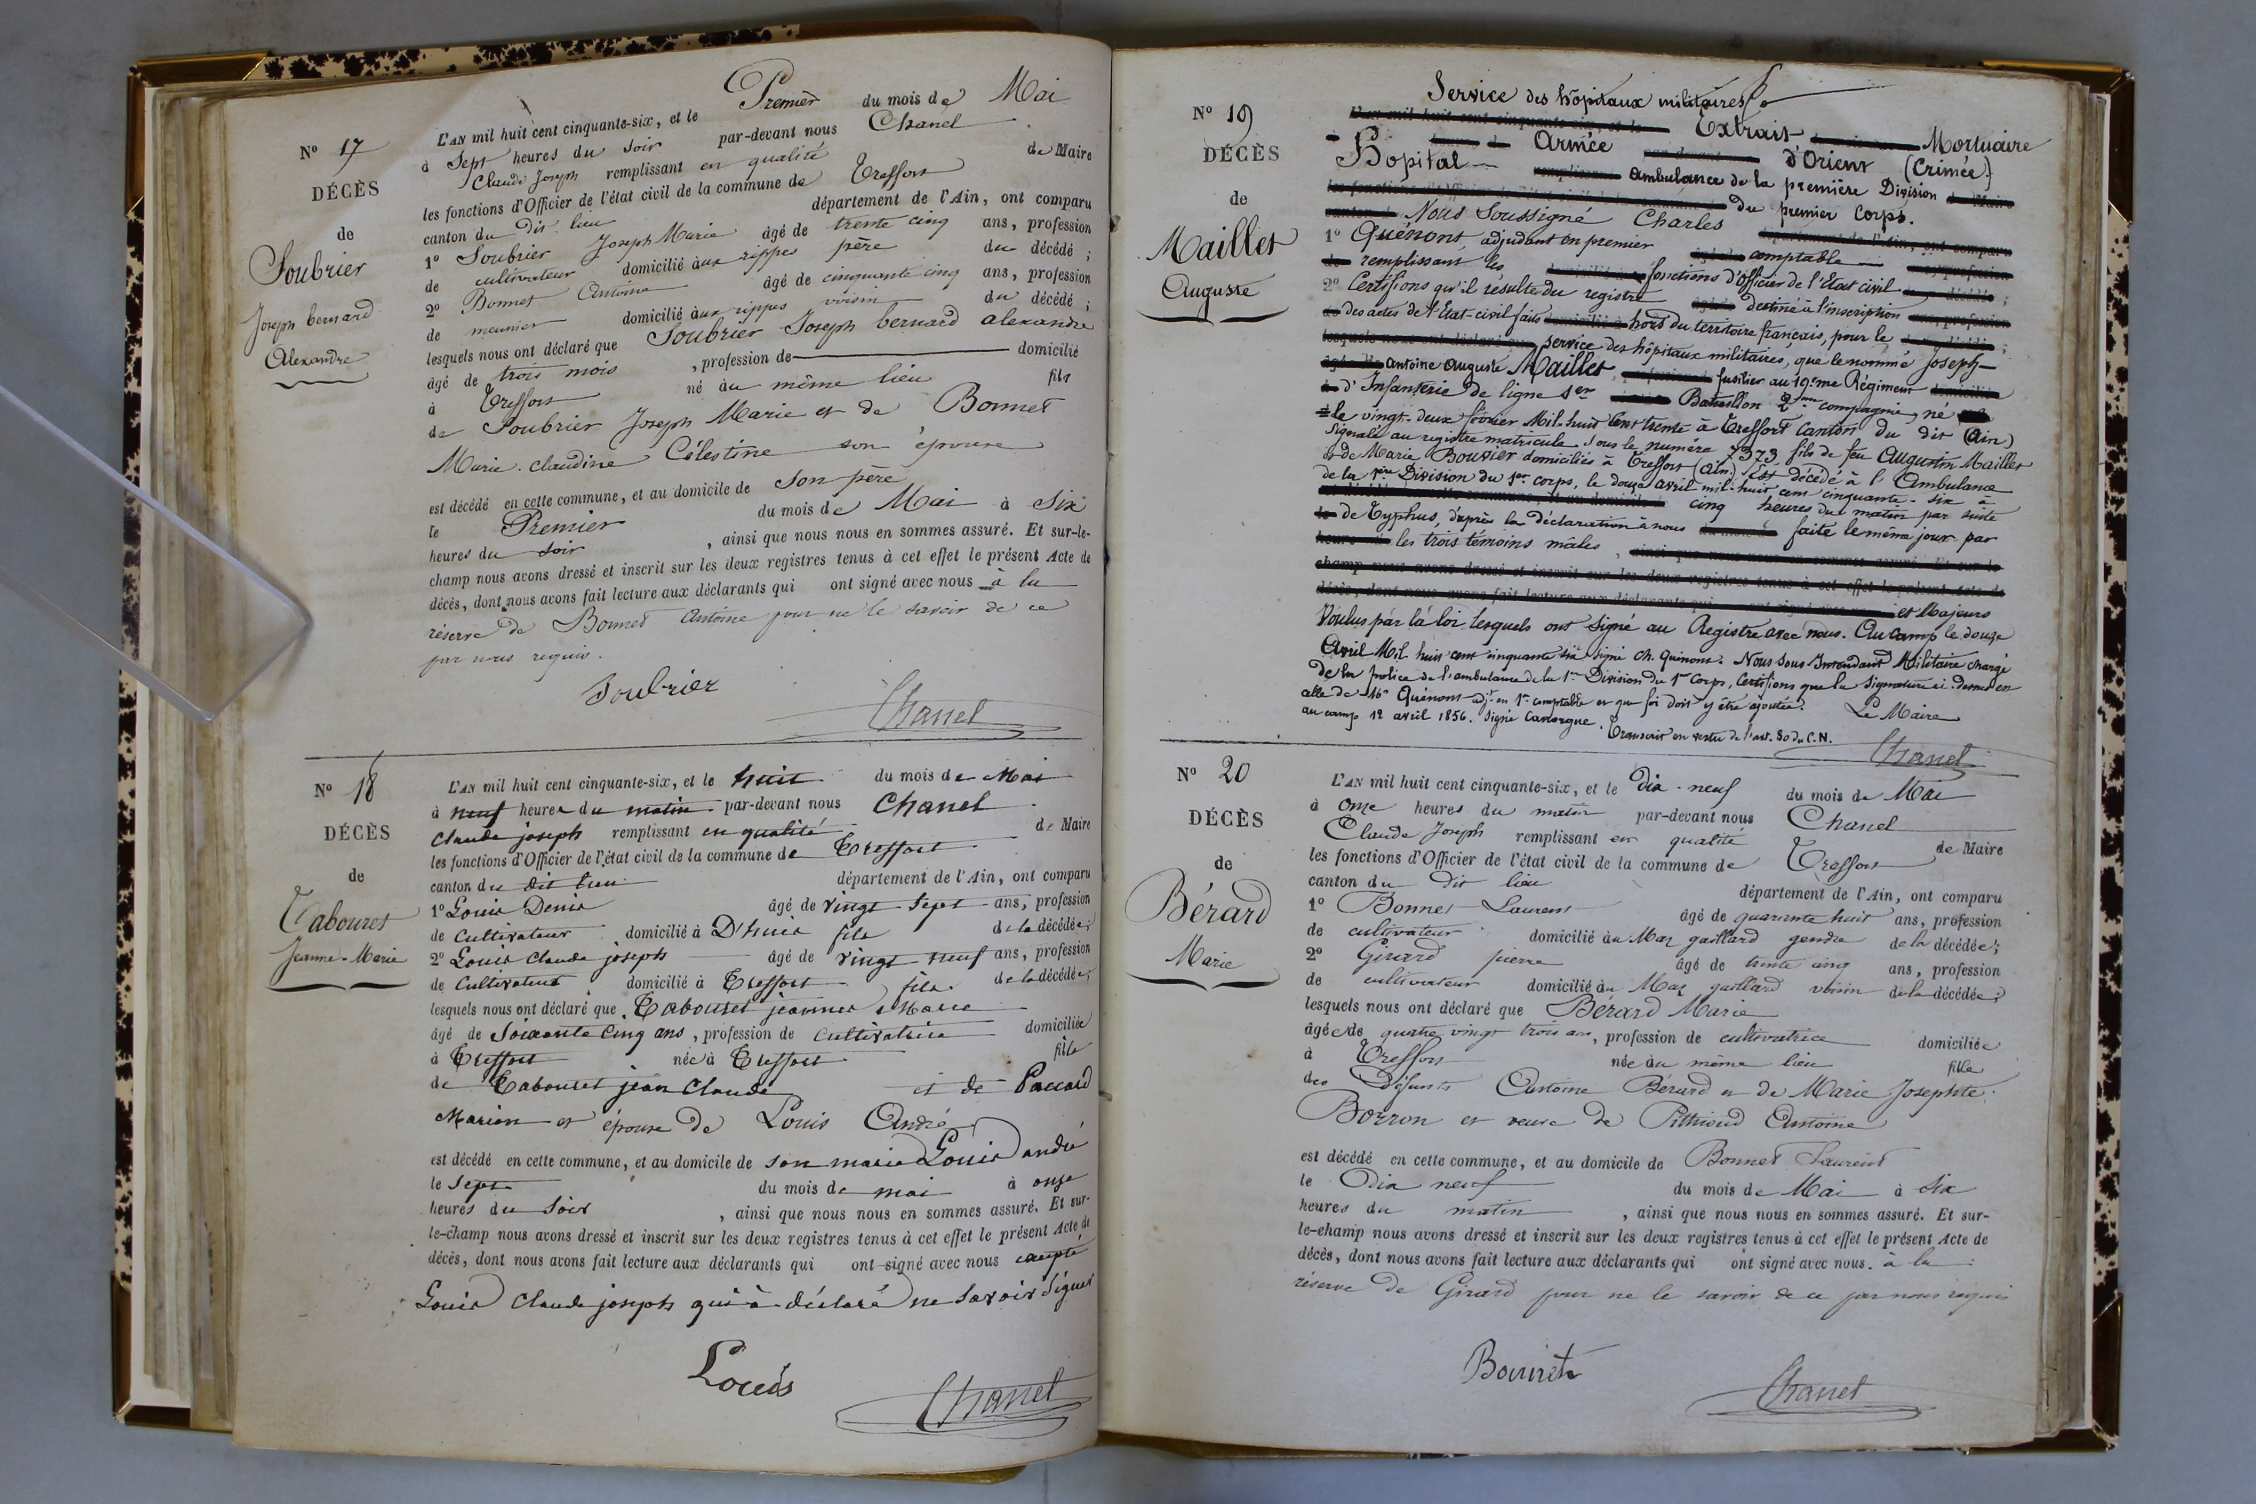 N° 17
DÉCÈS
de
Soubrier
Joseph bernard
Alexandre
L'AN mil huit cent cinquante-six, et le Premier du mois de Mai
à Sept heures du soir par-devant nous Chanel
Claude Joseph remplissant en qualité de Maire
les fonctions d'Officier de l'état civil de la commune de Treffort
canton du dit lieu département de l'Ain, ont comparu
1° Soubrier Joseph Marie âgé de trente cinq ans, profession
de cultivateur domicilié aux rippes père du décédé ;
2° Bonnet Antoine âgé de cinquante cinq ans, profession
de meunier domicilié aux rippes voisin du décédé ;
lesquels nous ont déclaré que Soubrier Joseph bernard alexandre
âgé de trois mois , profession de domicilié
à Treffort né au même lieu fils
de Soubrier Joseph Marie et de Bonnet
Marie claudine Célestine son épouse
est décédé en cette commune, et au domicile de son père
le Premier du mois de Mai à Six
heures du soir , ainsi que nous nous en sommes assuré. Et sur-le-
champ nous avons dressé et inscrit sur les deux registres tenus à cet effet le présent Acte de
décès, dont nous avons fait lecture aux déclarants qui ont signé avec nous à la
réserve de Bonnet Antoine pour ne le savoir de ce
par nous requis.
Soubrier
Chanel
N° 18
DÉCÈS
de
Tabouret
Jeanne-Marie
L'AN mil huit cent cinquante-six, et le huit du mois de Mai
à neuf heures du matin par-devant nous Chanel
Claude joseph remplissant en qualité de Maire
les fonctions d'Officier de l'état civil de la commune de Treffort
canton du dit lieu département de l'Ain, ont comparu
1° Louis Denis âgé de vingt sept ans, profession
de Cultivateur domicilié à fils de la décédée ;
2° Louis Claude joseph âgé de vingt neuf ans, profession
de Cultivateur domicilié à Treffort fils de la décédée ;
lesquels nous ont déclaré que Tabouret jeanne Marie
âgé de Soixante Cinq ans , profession de Cultivatrice domiciliée
à Treffort née à Treffort fille
de Tabouret jean Claude et de Paccard
Marion et épouse de Louis André
est décédé en cette commune, et au domicile de son marie Louis andré
le Sept du mois de mai à onze
heures du Soir , ainsi que nous nous en sommes assuré. Et sur-
le-champ nous avons dressé et inscrit sur les deux registres tenus à cet effet le présent Acte de
décès, dont nous avons fait lecture aux déclarants qui ont signé avec nous excepté
Louis Claude joseph qui a déclaré ne Savoir Signer
Louis
Chanel
N° 19
DÉCÈS
de
Maillet
Auguste
Service des hôpitaux militaires
Extrait Mortuaire
Armée d'Orient (Crimée)
Hopital Ambulance de la première Division
du premier Corps.
Nous Soussigné Charles
1° Quénont, adjudant en premier comptable
remplissant les fonctions d'officier de l'Etat civil
2° Certifions qu'il résulte du registre destiné à l'inscription
des actes de l'Etat-civil faits hors du territoire français, pour le
service des hôpitaux militaires, que le nommé Joseph
Antoine Auguste Maillet fusilier au 19me Régiment
d'Infanterie de ligne 1er Bataillon 2me compagnie, né
le vingt-deux février Mil-huit Cent trente à Treffort Canton du dit (Ain)
Signalé au registre matricule sous le numéro 7373 fils de feu Augustin Maillet
& de Marie Bouvier domiciliés à Treffort (Ain) Est décédé à l'Ambulance
de la 1ère Division du 1er corps, le douze avril mil-huit cent cinquante-six à
cinq heures du matin par suite
de Typhus, d'après la déclaration à nous faite le même jour par
les trois témoins mâles,
et Majeurs
Voulus par la loi lesquels ont signé au Registre avec nous. Au camp le douze
Avril Mil huit cent cinquante six signé Ch. Quénont. Nous Sous Intendant Militaire chargé
de la police de l'ambulance de la 1re Division du 1er Corps, Certifions que la signature ci-dessus est
celle de Mr Quénont adjt en 1er comptable et que foi doit y être ajoutée.
au camp 12 avril 1856. Signé Canorgue. Le Maire
Transcrit en vertu de l'art. 80 du C.N.
Chanel
N° 20
DÉCÈS
de
Bérard
Marie
L'AN mil huit cent cinquante-six, et le dix-neuf du mois de Mai
à onze heures du matin par-devant nous Chanel
Claude Joseph remplissant en qualité de Maire
les fonctions d'Officier de l'état civil de la commune de Treffort
canton du dit lieu département de l'Ain, ont comparu
1° Bonnet Laurent âgé de quarante huit ans, profession
de cultivateur domicilié au Maz gaillard gendre de la décédée ;
2° Girard pierre âgé de trente cinq ans, profession
de cultivateur domicilié au Maz gaillard voisin de la décédée ;
lesquels nous ont déclaré que Bérard Marie
âgée de quatre vingt trois ans, profession de cultivatrice domiciliée
à Treffort née au même lieu fille
des défunts Antoine Bérard et de Marie Josephte
Borron et veuve de Antoine
est décédé en cette commune, et au domicile de Bonnet Laurent
le Dix neuf du mois de Mai à Six
heures du matin , ainsi que nous nous en sommes assuré. Et sur-
le-champ nous avons dressé et inscrit sur les deux registres tenus à cet effet le présent Acte de
décès, dont nous avons fait lecture aux déclarants qui ont signé avec nous. à la
réserve de Girard pour ne le savoir de ce par nous requis
Bonnet
Chanel